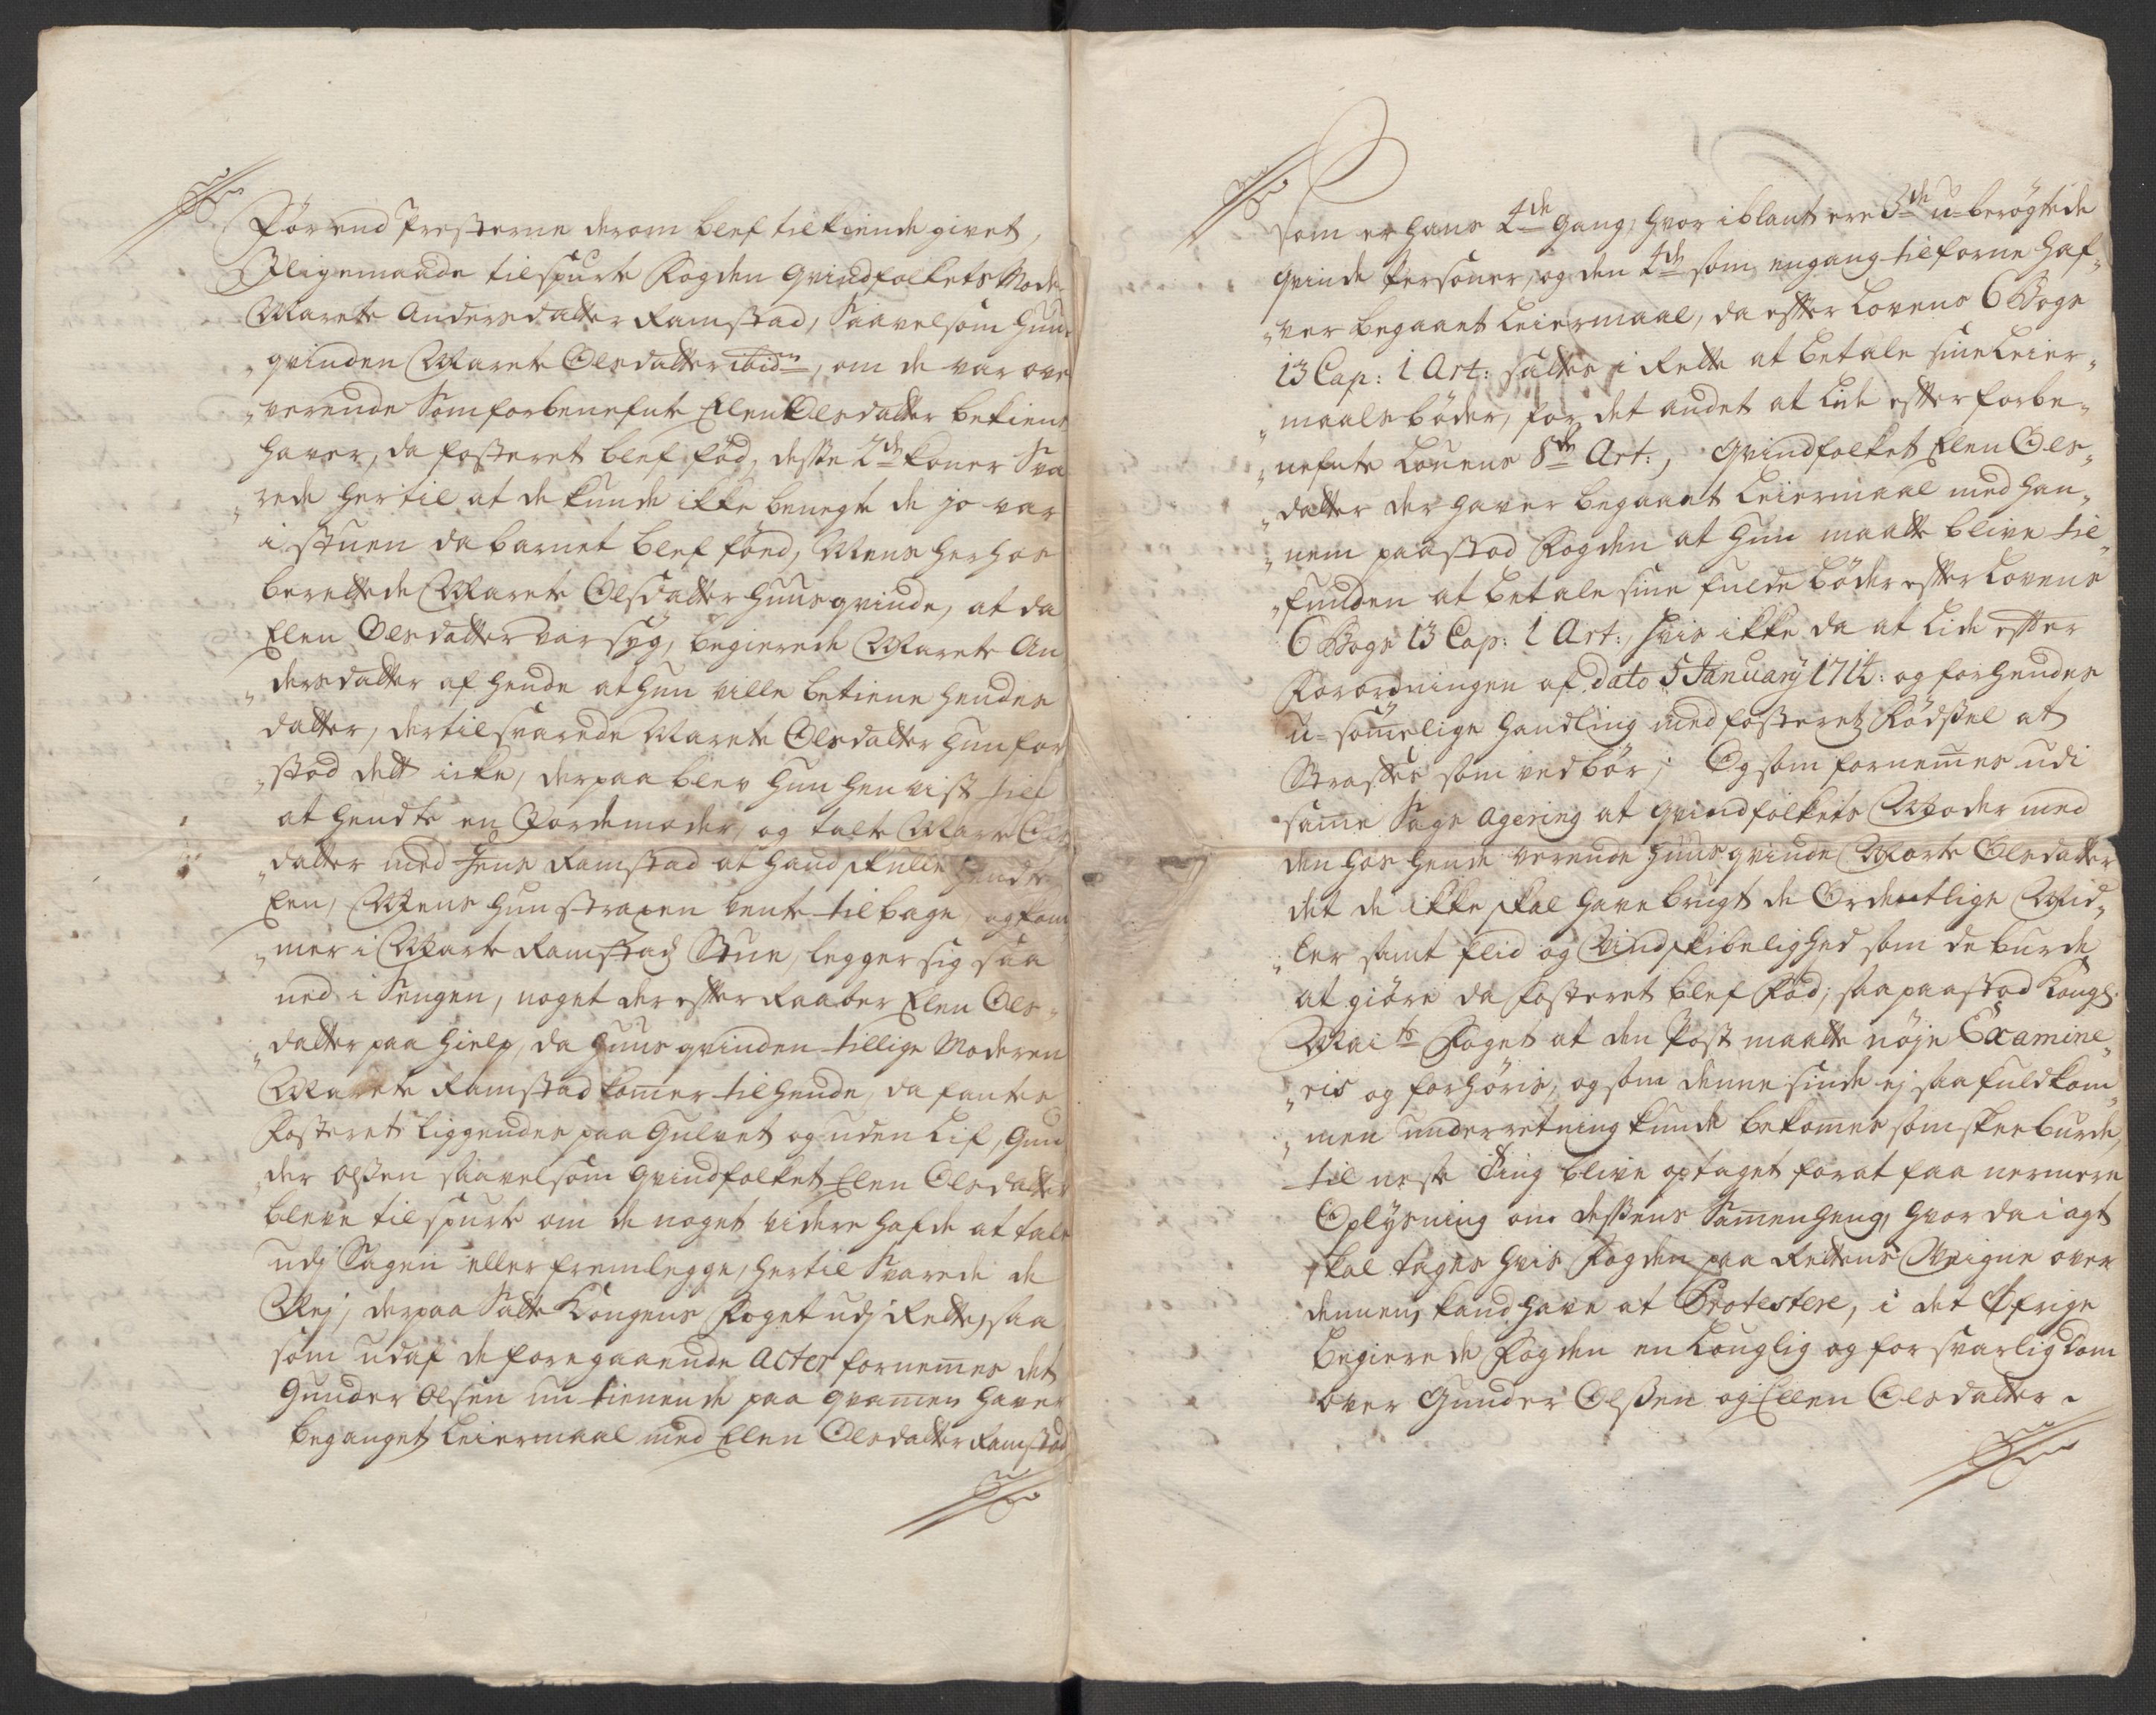 Förend Presterne derom blef tilkiende givet,
Iligemaade tilspurte Fogden qvindfolkets Moder
Marete Andersdatter Ramstad, Saavelsom Huus-
qvinden Marete Olsdatter ibid:, om de var over
værende Som forbenefnte Elen Olsdatter bekient
haver, da fosteret blef fød, desse 2de koner Sva
rede hertil at de kunde ikke benegte de jo var
i stuen da barnet blef fönd, Mens herhos
berettede Marete Olsdatter huusqvinde, at da
Elen Olsdatter var syg, begierede Marete An
dersdatter af hende at hun ville betiene hendes
datter, dertil svarede Marete Olsdatter hun for
stod dett icke, derpaa blev hun hen vist til
at hendte en Jordemoder, og talte Marete Ols
datter med Jens Ramstad at hand skulle hendte
Een, Mens hun straxen vente tilbage, og kom
mer i Marte Ramstad Stue, legger sig saa
ned i Sengen, noget derefter Raaber Elen Ols-
datter paa hielp, da huusqvinden tillige Moderen
Marete Ramstad komer til hende, da fantes
Fosteret liggendes paa Gulvet og uden Lif, Gun
der Olssen saavelsom qvindfolket Elen Olsdatter
bleve tilspurte om de noget videre hafde at tale
udj Sagen eller fremlegge, hertil Svarede de
Nej, derpaa Satte Kongens Foget udj Rette, saa
som udaf de foregaaende Acter fornemmes det
Gunder Olsen nu tienende paa Qvamen haver
beganget Leiermaal med Elen Olsdatter Ramstad
som er hans 4de gang, hvor iblant ere 3de u-berögtede
qvinde Personer, og den 4de som engang tilforne haf-
ver begaaet Leiermaal, da efter Lovens 6 Bogs
13 Cap: 1 Art: sattes i Rette at betale sine Leier-
maals böder, for det andet at Lide efter forbe-
nefnte Lovens 8de Art:, qvindfolket Elen Ols-
datter der haver begaaet Leiermaal med han-
nem paastod Fogden at hun maatte blive til-
funden at betale sine fulde böder efter Lovens
6 Bogs 13 Cap: 1 Art:, hvis ikke da at Lide efter
Forordningen af dato 5 January 1714: og for hendes
u-sömelige handling med fosteretz Födssel at
Straffes som vedbör; Og som fornemmes udi
samme Sags Agering at qvindfolkets Moder med
den hos hende verende huusqvinde Marte Olsdatter
det de ikke skal have brugt de Ordentlige Mid-
ler samt flid og Vindskibelighed som de burde
at giöre da fosteret blef fød, saa paastod Kongl:
Maits Foget at den Post maatte nöje Examine-
ris og forhöris, og som denne sinde ej saa fuldkom-
men underretning kunde bekommes som skee burde,
til neste ting blive optaget forat faa nermere
Oplysning om dessens Samenheng, hvor da i agt
skal tages hvis Fogden paa Rettens Weigne over
dennem kand have at Protestere, i det Öfrige
begierede Fogden en Louglig og forsvarlig dom
over Gunder Olssen og Ellen Olsdatter